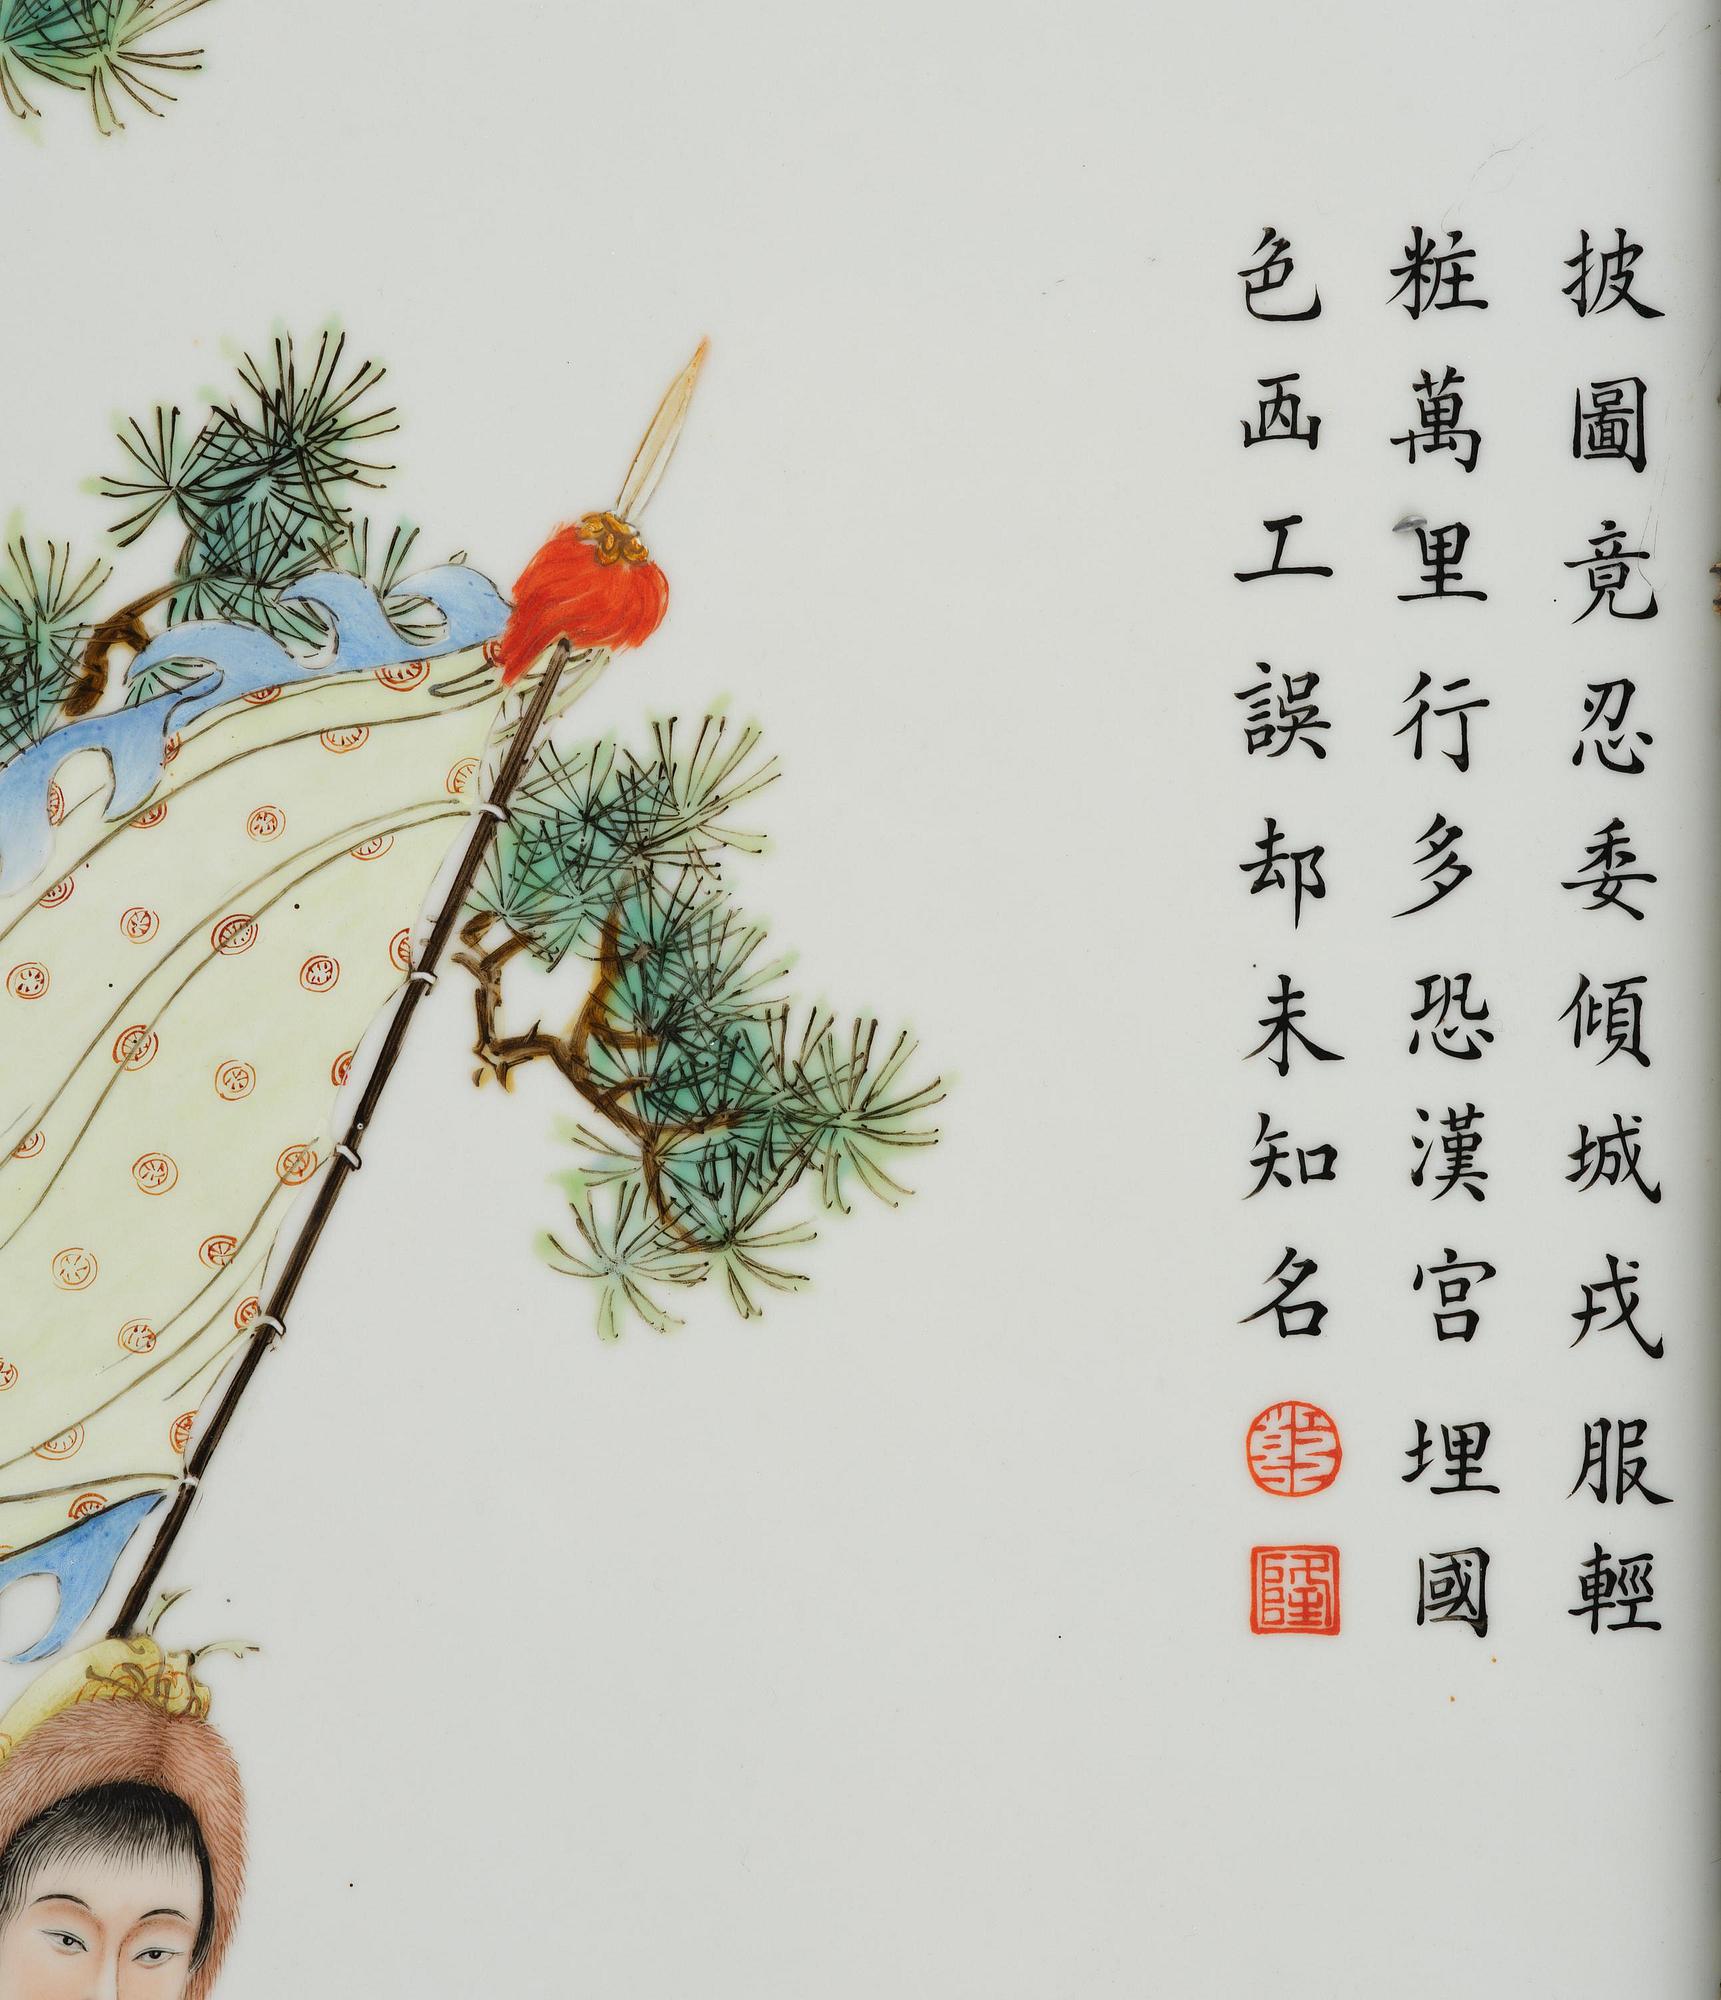 披圖竟忍委傾城戎服輕
粧萬里行多恐漢宮埋國
色画工誤却未知名
乾
隆